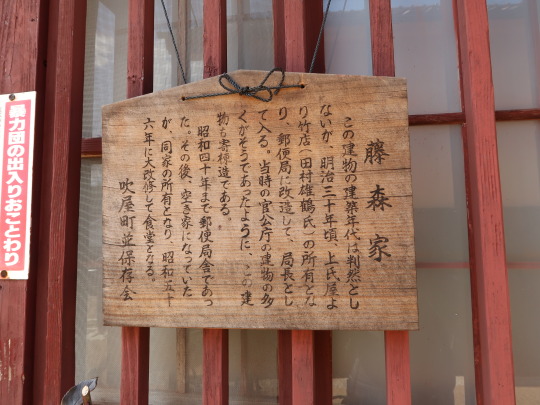 藤森家
この建物の建築年代は判然とし
ないが、明治三十年頃、上氏屋よ
り竹店(田村雄鶴氏)の所有とな
り、郵便局に改造して、局長とし
て入る。当時の官公庁の建物の多
くがそうであったように、この建
物も寄棟造である。
昭和四十年まで郵便局舎であっ
た。その後、空き家になっていた
が、同家の所有となり、昭和五十
六年に大改修して食堂となる。
吹屋町並保存会
暴力団の出入りおことわり